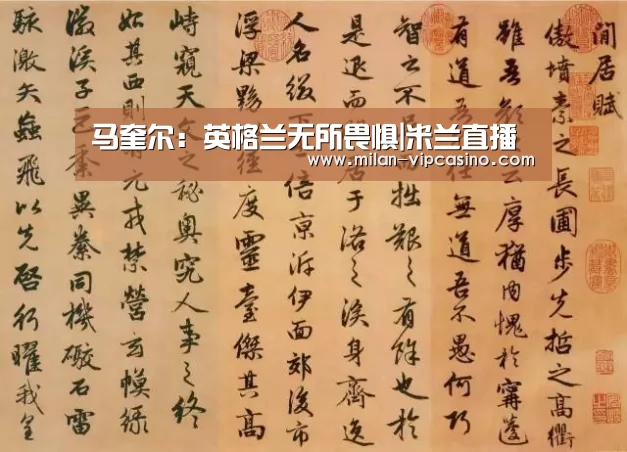 马奎尔：英格兰无所畏惧|米兰直播
www.milan-vipcasino.com
閒居賦
傲墳素之長圃步先哲之高衢
雖吾顏云厚猶內愧於甯蘧
有道吾仕無道吾不愚何巧
智之不拙艱之有餘也於
是退而居于洛之涘身齊逸
人名綴倍京泝伊面郊後市
浮梁黝徑度靈臺傑其高
峙窺天之秘奧究人事之終
始其西則元戎禁營玄幙綠
徽溪子巨黍異絭同機礮石雷
駭激矢蝱飛以先啓行曜我皇